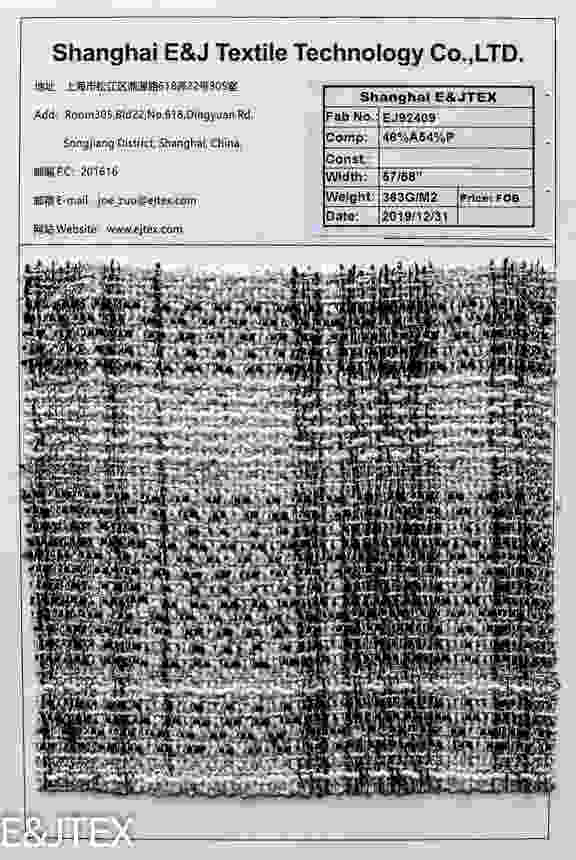 Shanghai E&J Textile Technology Co.,LTD.
地址 上海市松江区鼎源路618弄22号305室
Add: Room305,Bld22,No.618,Dingyuan Rd.
Songjiang District, Shanghai, China.
邮编 P.C: 201616
邮箱 E-mail: joe_zuo@ejtex.com
网站 Website: www.ejtex.com
Shanghai E&JTEX
Fab No.: EJ92409
Comp: 46%A54%P
Const.
Width: 57/58"
Weight: 363G/M2 Price: FOB
Date: 2019/12/31
E&JTEX